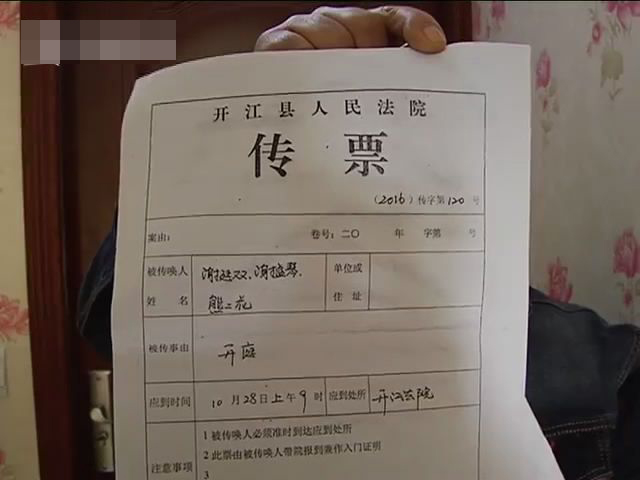 开江县人民法院
传票
（2016）传字第120号
案由： 卷号：二〇 年 字第 号
被传唤人姓名 单位或住址
熊二
被传事由 开庭
应到时间 10月28日上午9时 应到处所 开江法院
注意事项
1 被传唤人必须准时到达应到处所
2 此票由被传唤人带院报到兼作入门证明
3